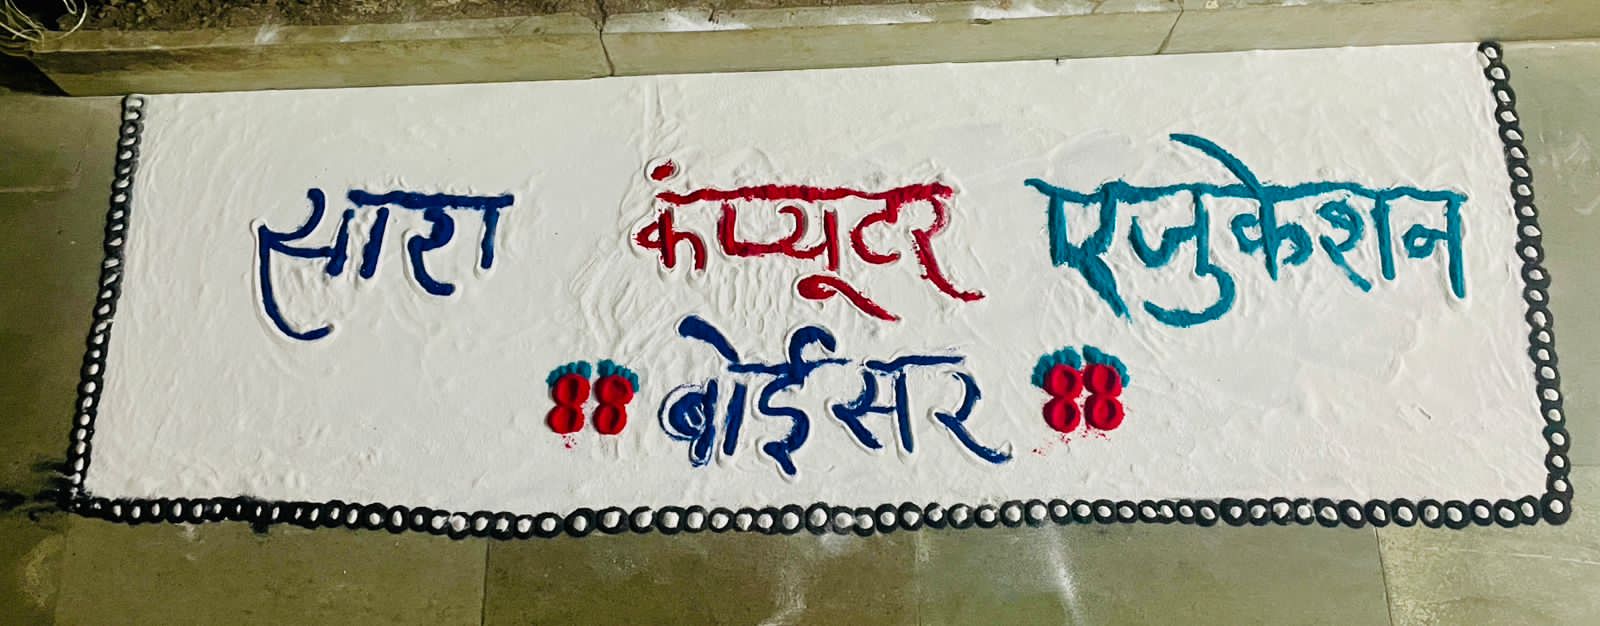 सारा कंप्यूटर एजुकेशन
बोईसर